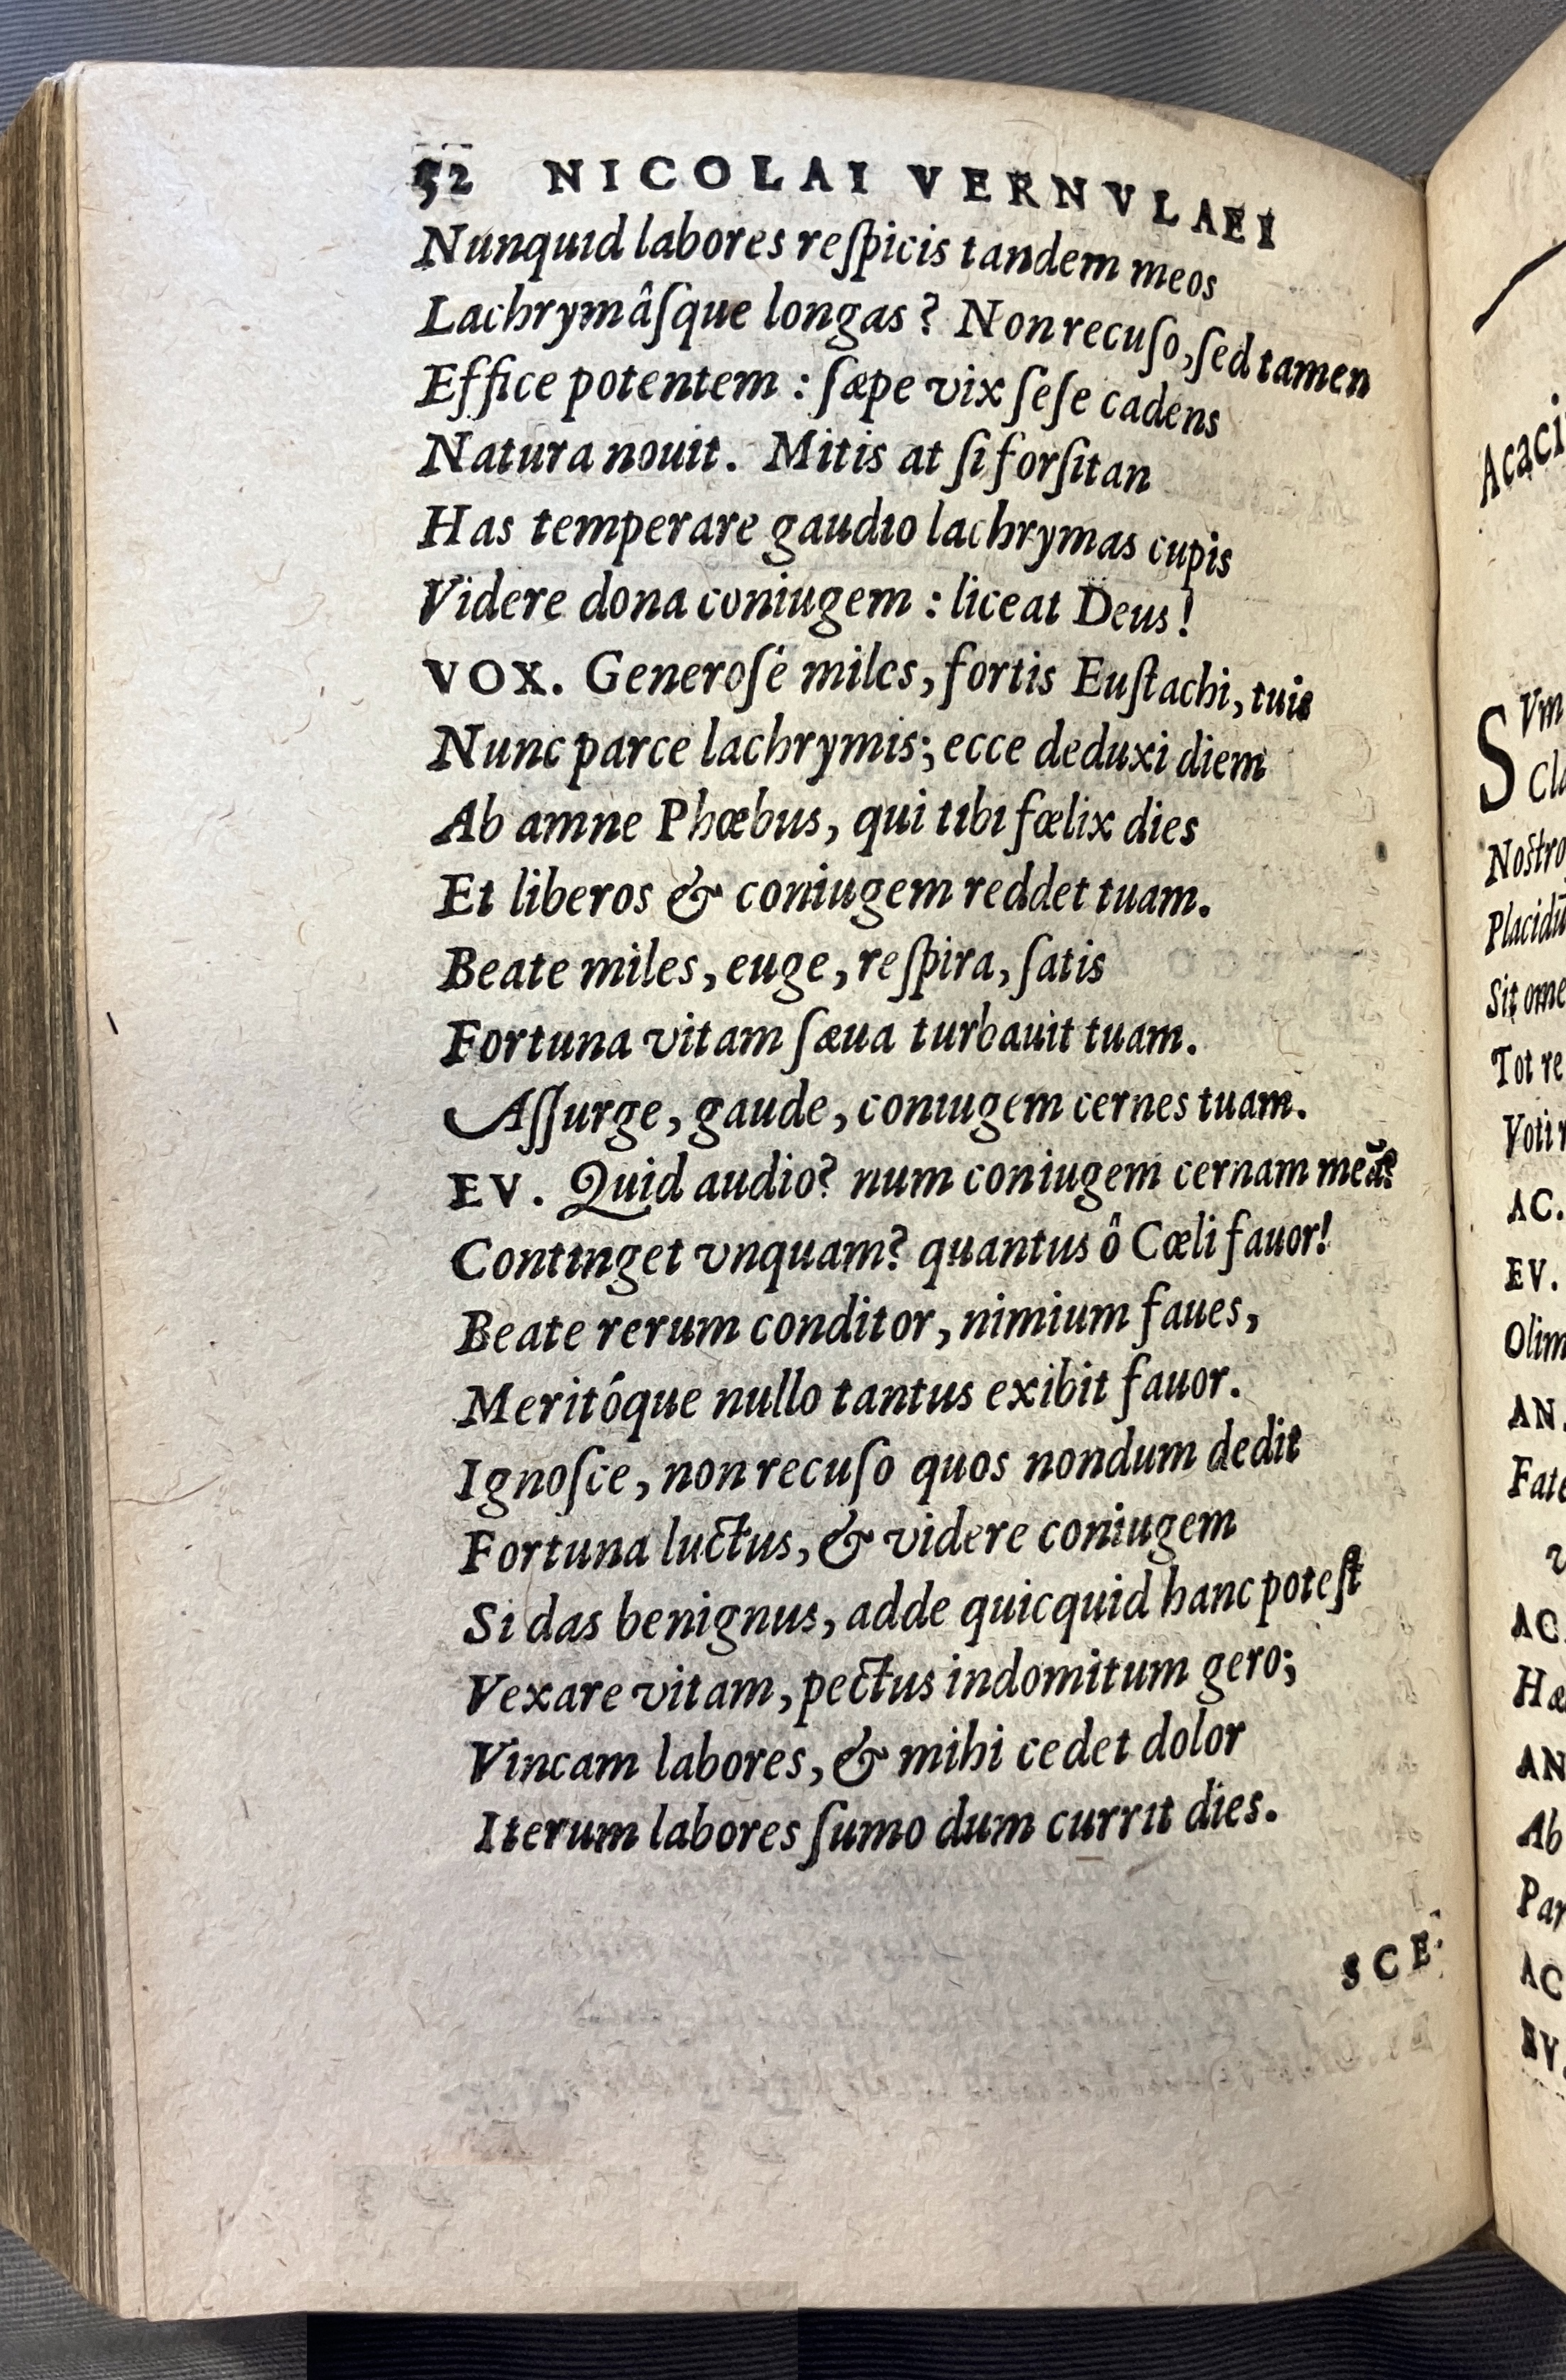 52 NICOLAI VERNVLAEI
Nunquid labores reſpicis tandem meos
Lachrymâſque longas? Non recuſo, ſed tamen
Effice potentem: ſæpe vix ſeſe cadens
Natura nouit. Mitis at ſi forſitan
Has temperare gaudio lachrymas cupis
Videre dona coniugem: liceat Deus!
VOX. Generoſe miles, fortis Euſtachi, tuis
Nunc parce lachrymis; ecce deduxi diem
Ab amne Phœbus, qui tibi fœlix dies
Et liberos & coniugem reddet tuam.
Beate miles, euge, reſpira, ſatis
Fortuna vitam ſæua turbauit tuam.
Aſſurge, gaude, coniugem cernes tuam.
EV. Quid audio? num coniugem cernam meã?
Continget vnquam? quantus ô Cœli fauor!
Beate rerum conditor, nimium faues,
Meritóque nullo tantus exibit fauor.
Ignoſce, non recuſo quos nondum dedit
Fortuna luctus, & videre coniugem
Si das benignus, adde quicquid hanc poteſt
Vexare vitam, pectus indomitum gero;
Vincam labores, & mihi cedet dolor
Iterum labores ſumo dum currit dies.
SCE-
Acaci
SVm
Cla
Noſtro
Placidū
Sit ome
Tot re
Voti
AC.
EV.
Olim
AN.
Fate
v
AC.
Hæ
AN
Ab
Par
AC
EV.